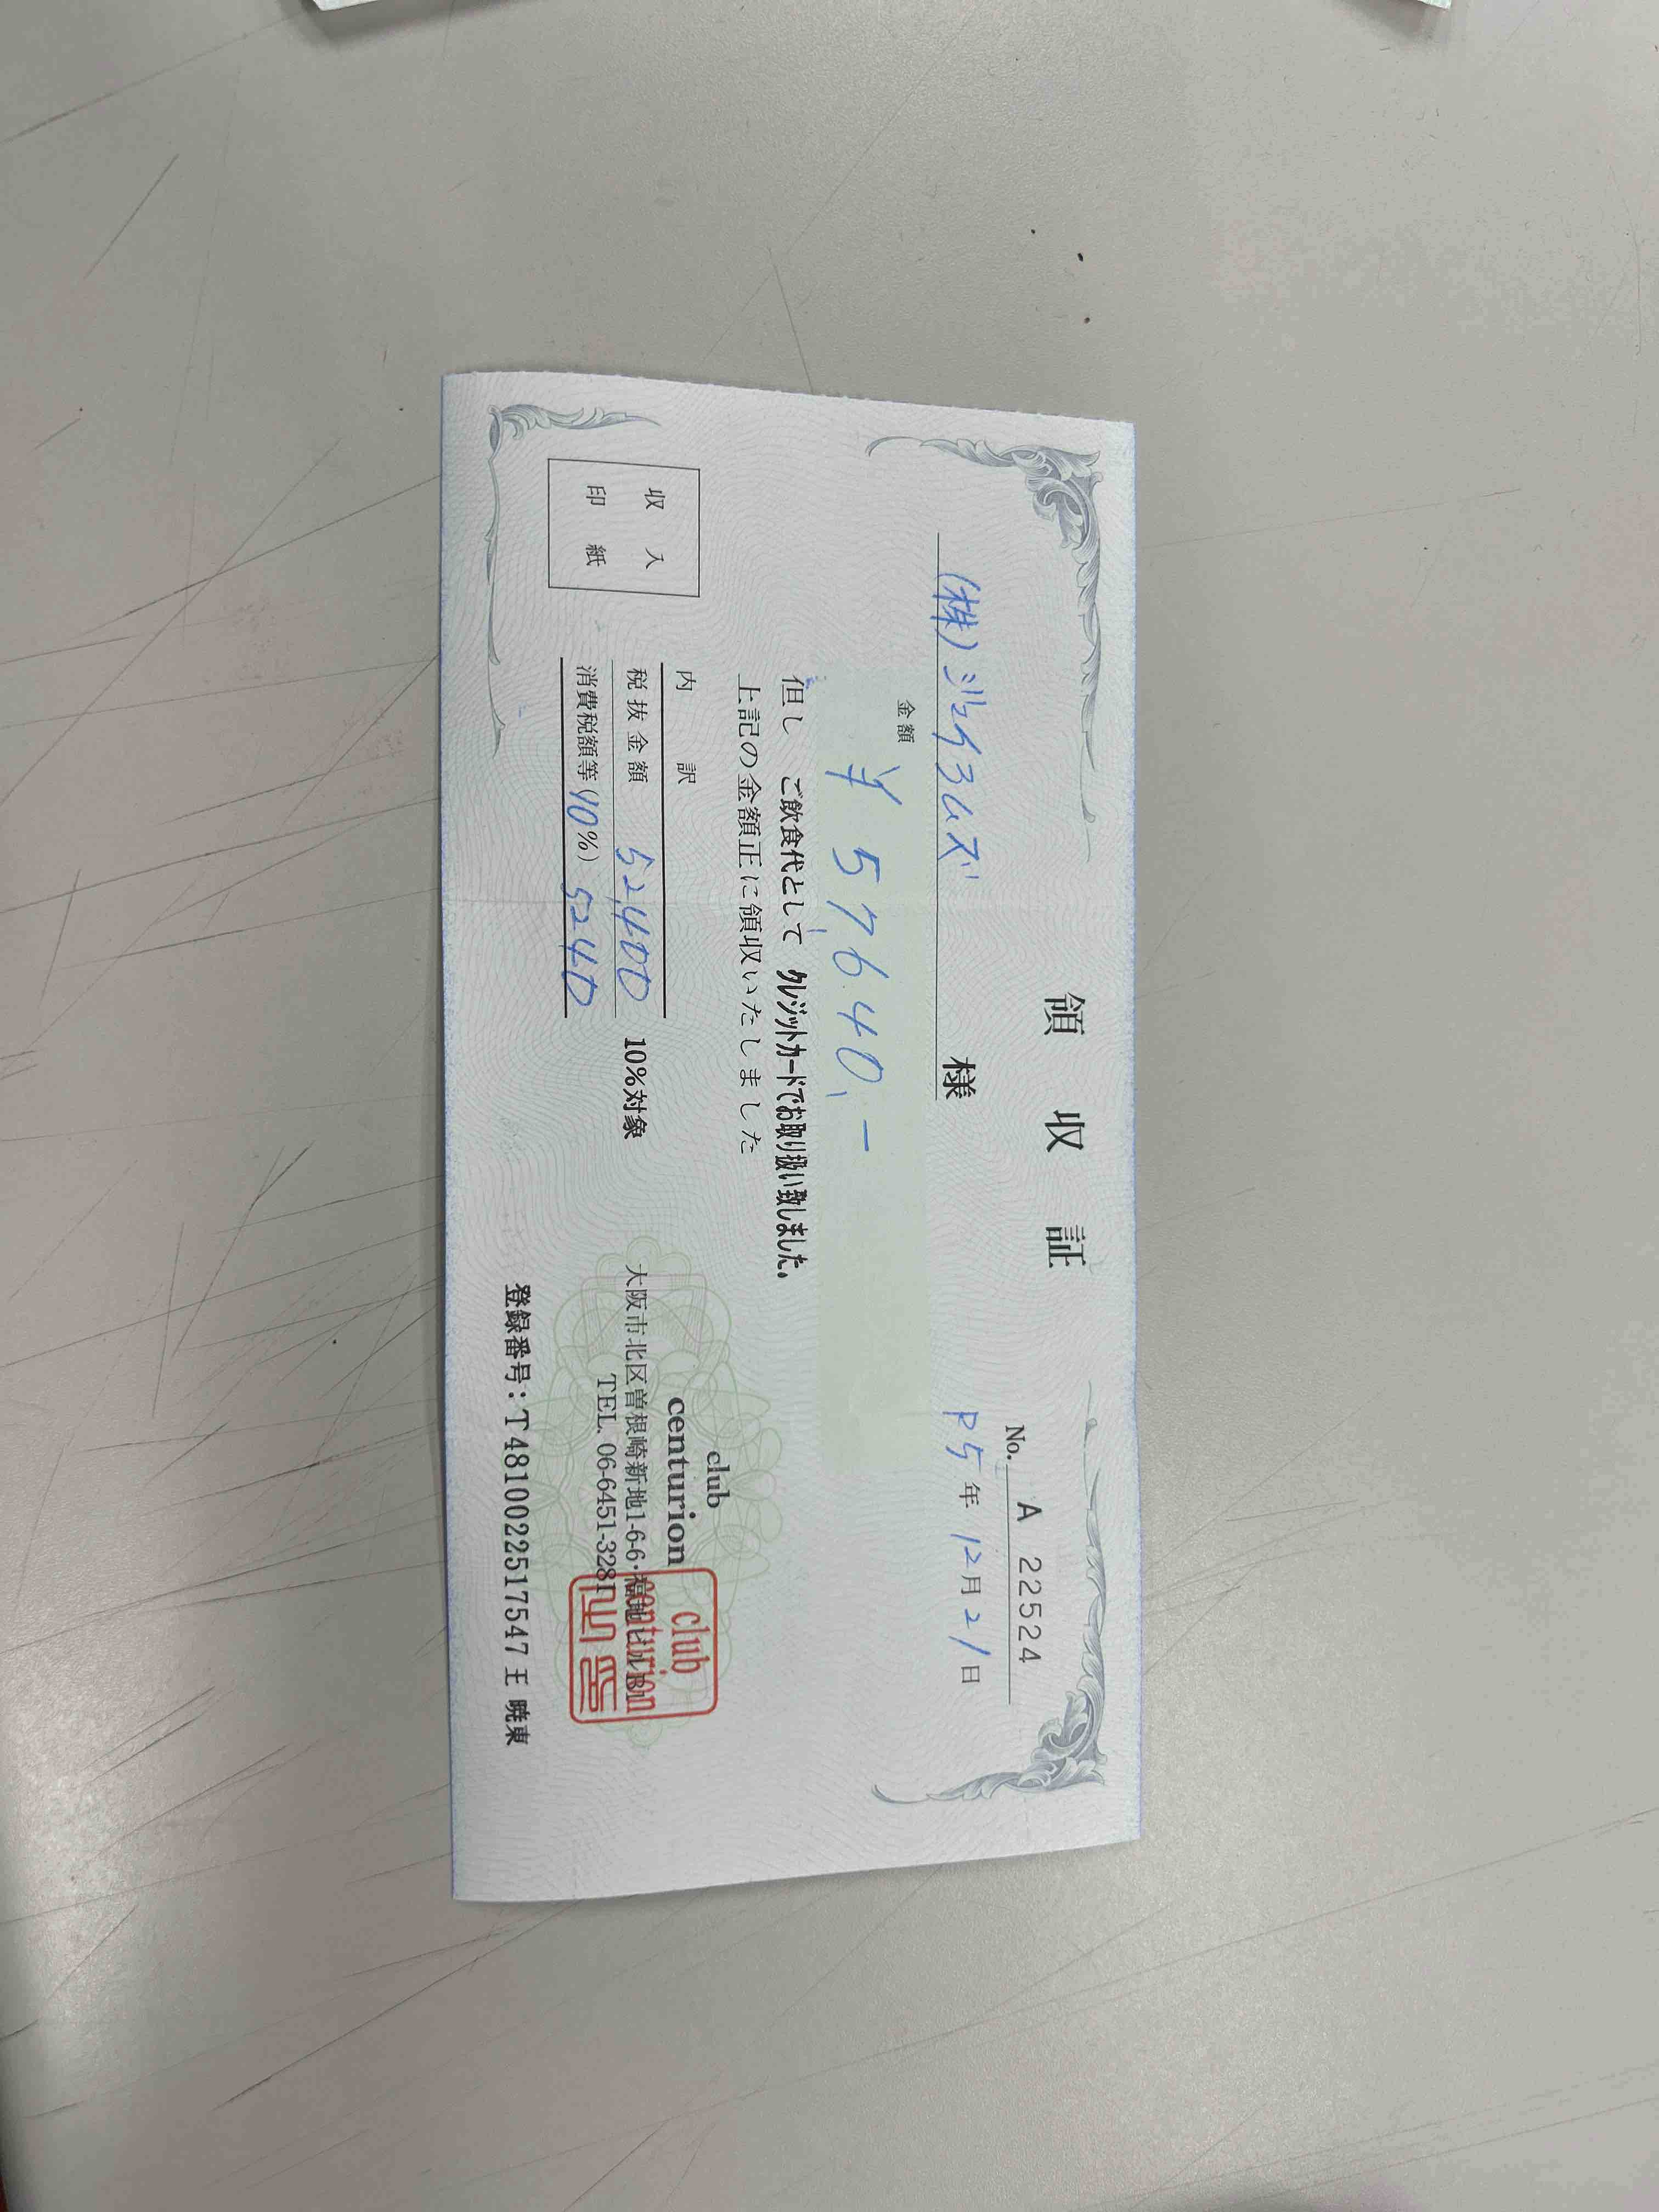 領収証
No. A 22524
R5年12月21日
(株)ジェイラムズ 様
金額
¥57,640,-
但し ご飲食代として クレジットカードでお取り扱い致しました。
上記の金額正に領収いたしました
内訳
税抜金額 52,400 10%対象
消費税額等(10%) 5240
収入
印紙
club
centurion
大阪市北区曽根崎新地1-6-6・福地ビルB1
TEL. 06-6451-3281
club
centurion
登録番号：T4810022517547 王 暁東